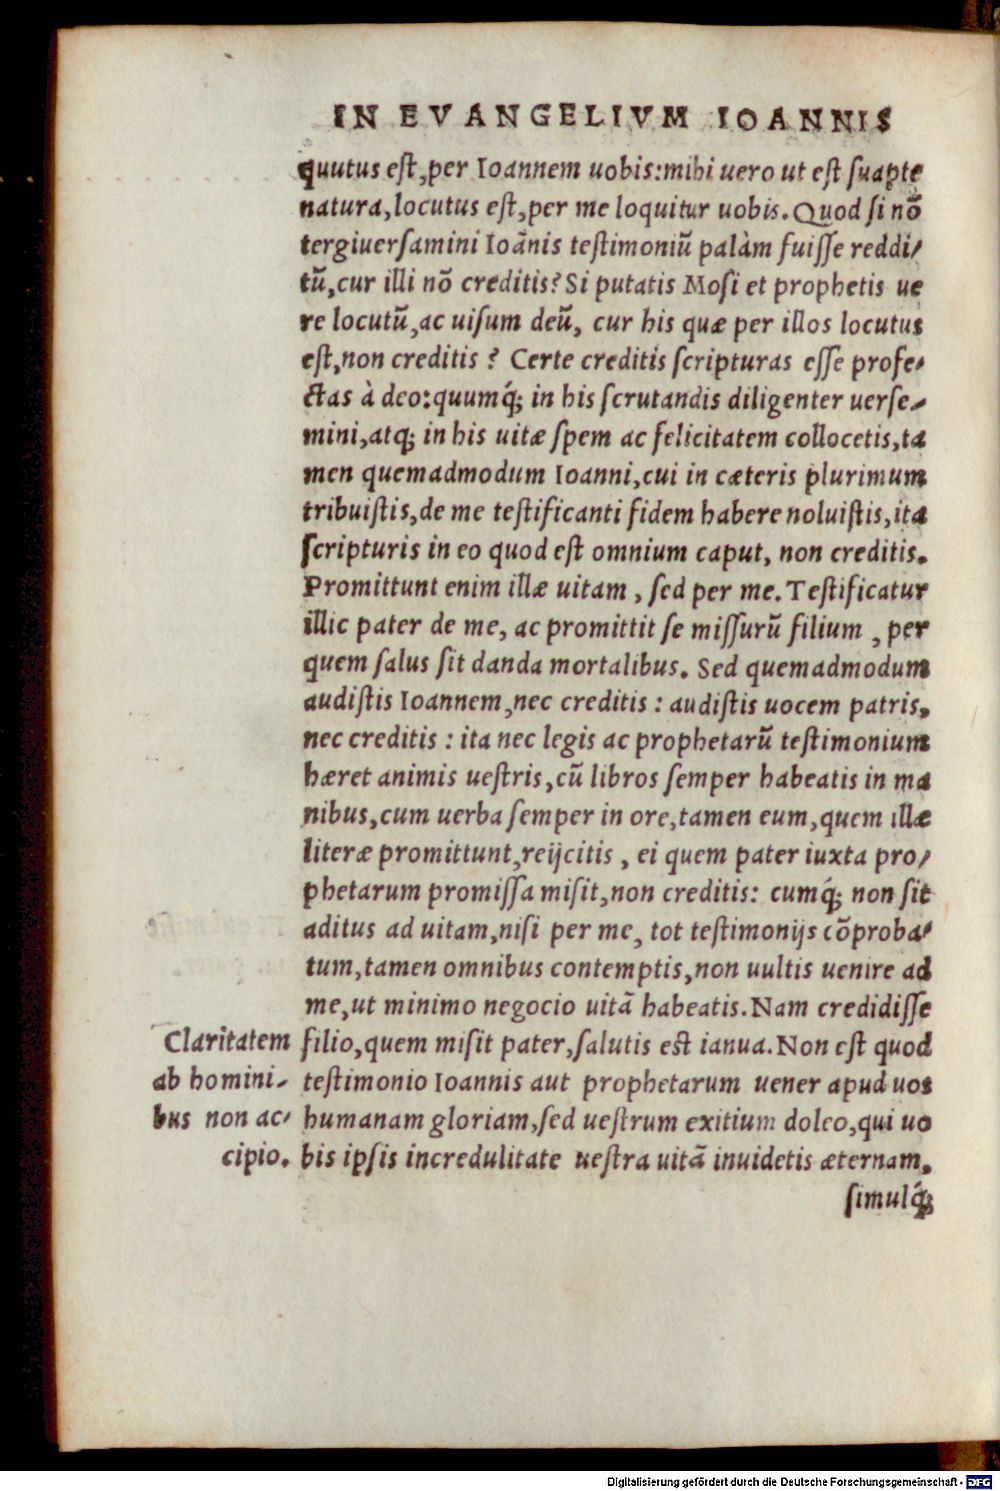 IN EVANGELIVM IOANNIS
quutus est, per Ioannem uobis: mihi uero ut est suapte
natura, locutus est, per me loquitur uobis. Quod si nõ
tergiuersamini Ioãnis testimoniũ palàm fuisse reddi/
tũ, cur illi nõ creditis? Si putatis Mosi et prophetis ue
re locutũ, ac uisum deũ, cur his quæ per illos locutus
est, non creditis? Certe creditis scripturas esse profe/
ctas à deo: quumq́; in his scrutandis diligenter uerse/
mini, atq; in his uitæ spem ac felicitatem collocetis, ta
men quemadmodum Ioanni, cui in cæteris plurimum
tribuistis, de me testificanti fidem habere noluistis, ita
scripturis in eo quod est omnium caput, non creditis.
Promittunt enim illæ uitam, sed per me. Testificatur
illic pater de me, ac promittit se missurũ filium, per
quem salus sit danda mortalibus. Sed quemadmodum
audistis Ioannem, nec creditis: audistis uocem patris,
nec creditis: ita nec legis ac prophetarũ testimonium
hæret animis uestris, cũ libros semper habeatis in ma
nibus, cum uerba semper in ore, tamen eum, quem illæ
literæ promittunt, reijcitis, ei quem pater iuxta pro/
phetarum promissa misit, non creditis: cumq́; non sit
aditus ad uitam, nisi per me, tot testimonijs cõproba/
tum, tamen omnibus contemptis, non uultis uenire ad
me, ut minimo negocio uitã habeatis. Nam credidisse
filio, quem misit pater, salutis est ianua. Non est quod
testimonio Ioannis aut prophetarum uener apud uos
humanam gloriam, sed uestrum exitium doleo, qui uo
bis ipsis incredulitate uestra uitã inuidetis æternam,
simulq́;
Claritatem
ab homini/
bus non ac/
cipio.
Digitalisierung gefördert durch die Deutsche Forschungsgemeinschaft - DFG